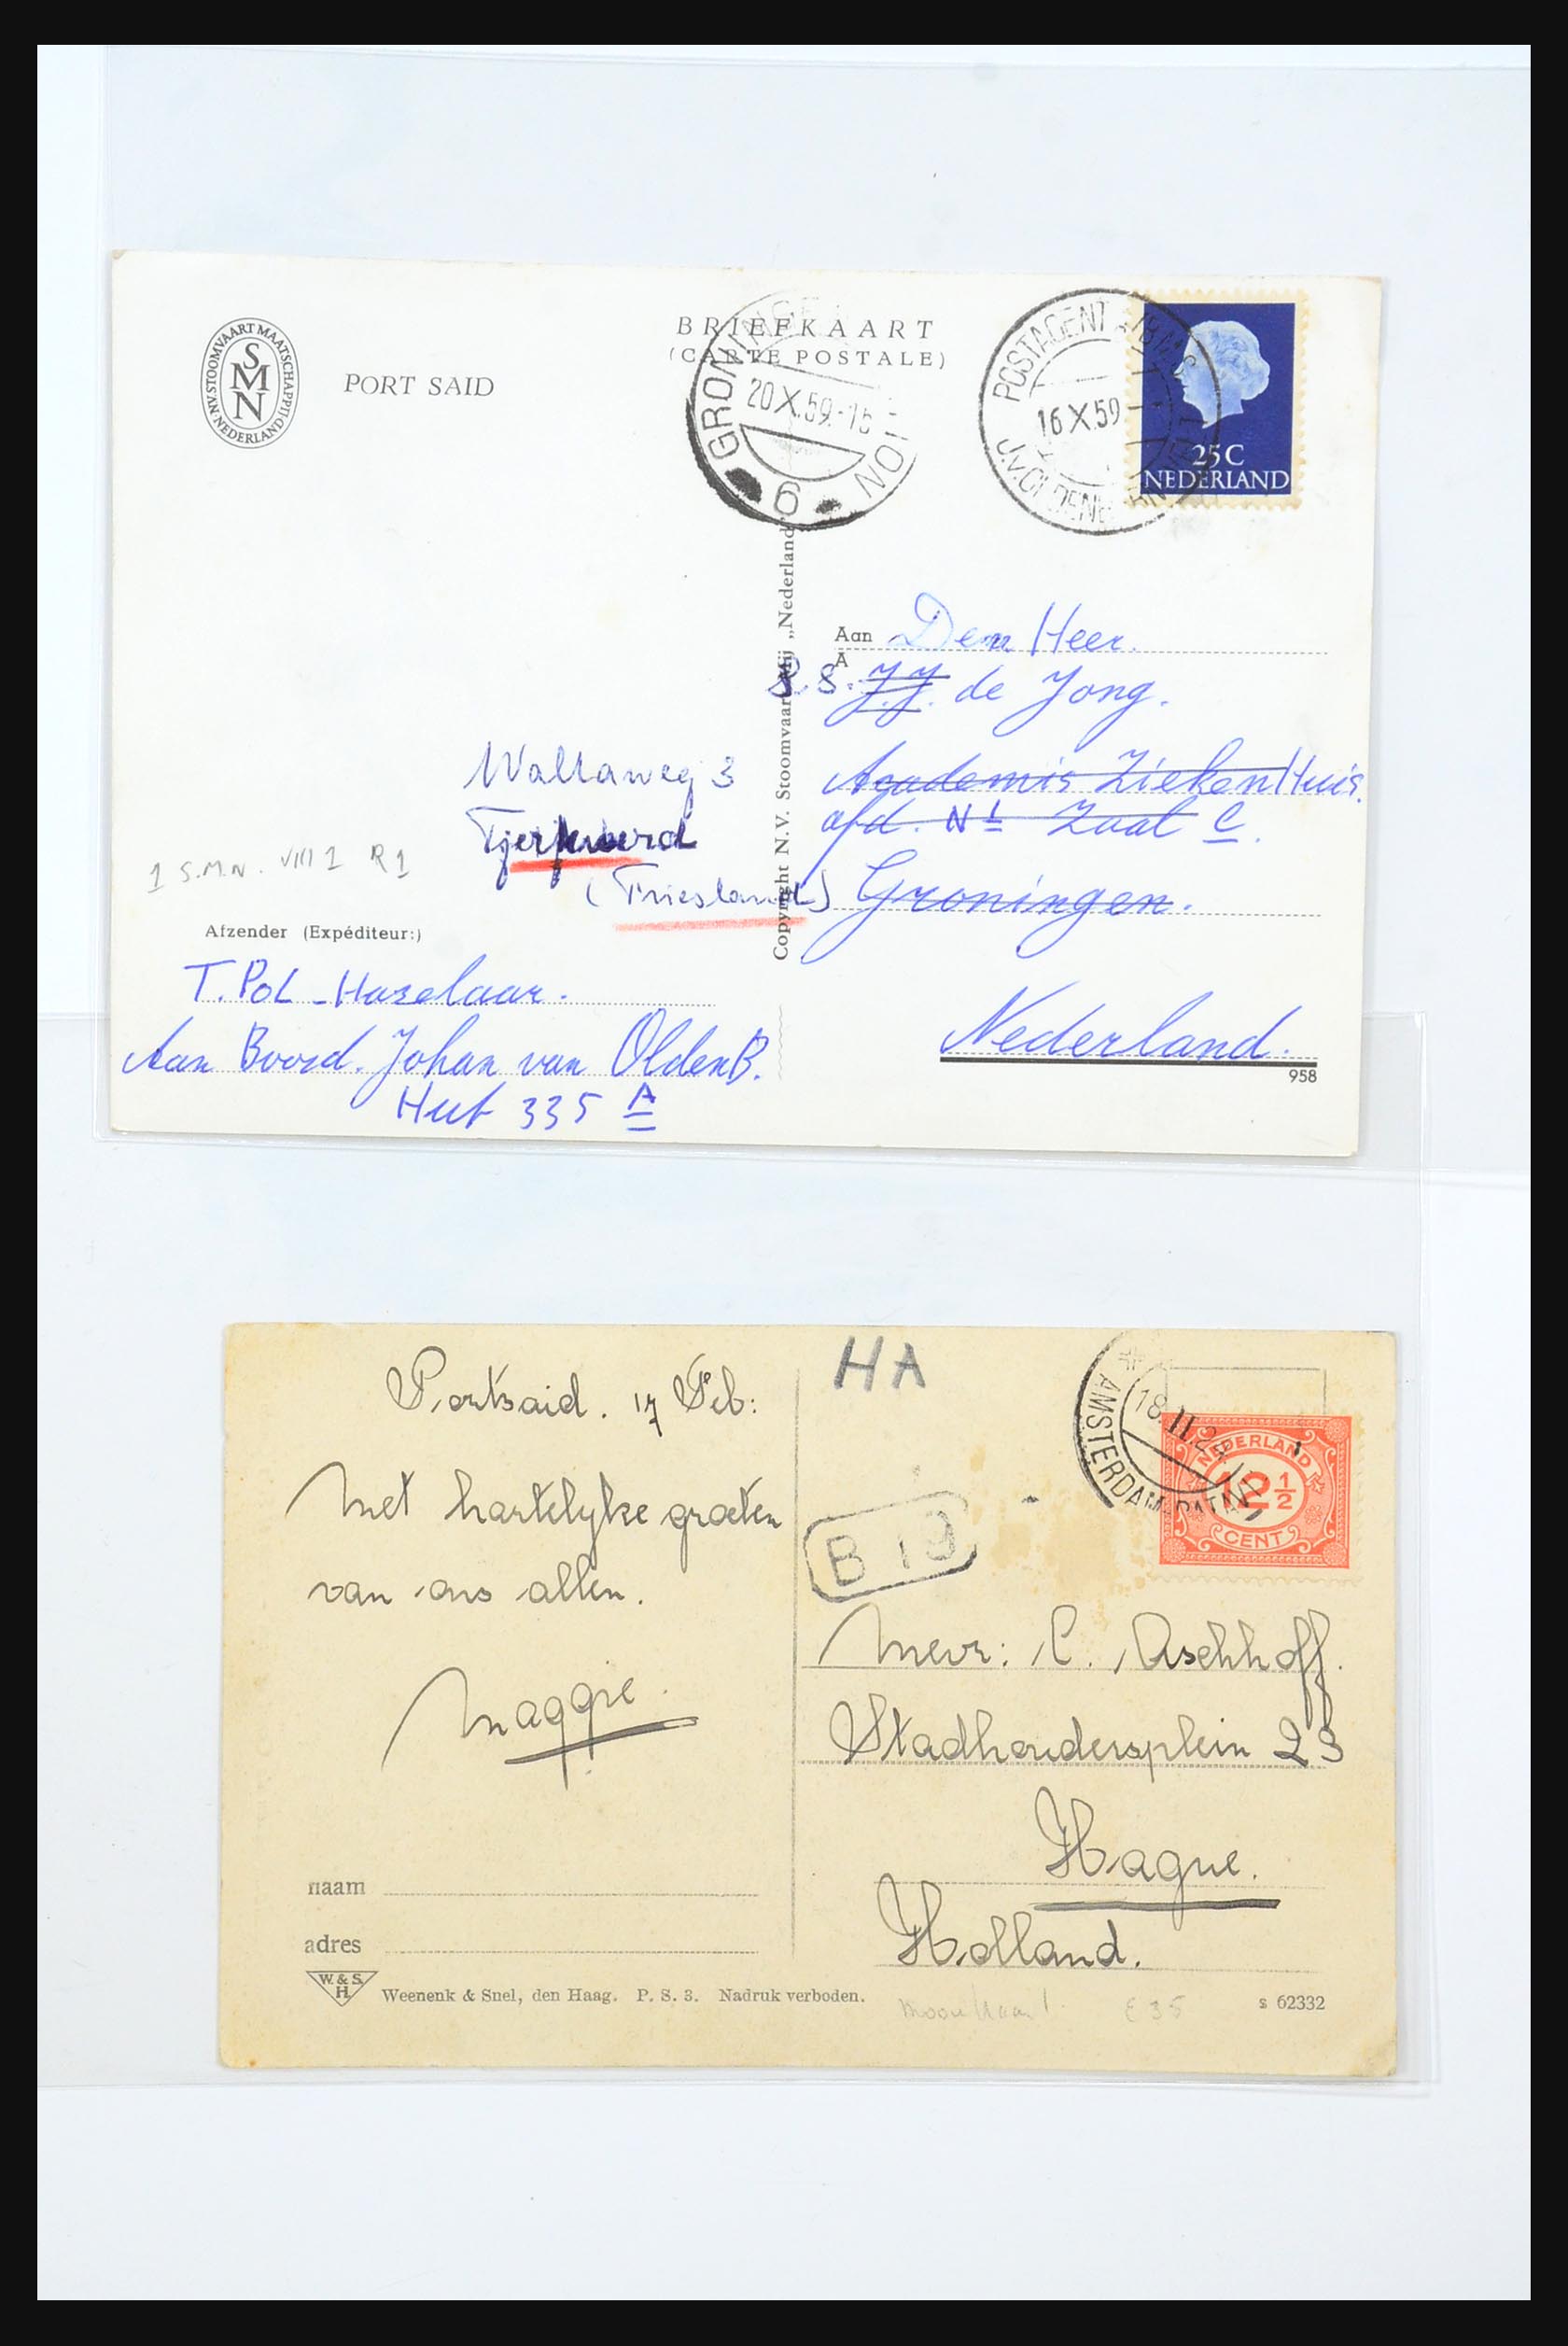 N.V. STOOMVAART MAATSCHAPPIJ NEDERLAND
SMN
PORT SAID
BRIEFKAART
(CARTE POSTALE)
GRONINGEN
20 X.59.-15
6
POSTAGENT
16 X.59
25 C
NEDERLAND
Aan Den Heer.
A
S. S. J.J. de Jong.
Academis ZiekenHuis.
afd. N1 Zaal C.
Groningen.
Nederland.
958
Walta weg 3
Tjerkwerd
(Friesland)
1 S.M.N. VIII 1 R 1
Copyright N.V. Stoomvaart Mij „Nederland"
Afzender (Expéditeur:)
T. Pol - Hazelaar.
Aan Boord. Johan van OldenB.
Hut 335 A
Portsaid. 17 Feb:
Met hartelyke groeten
van ons allen.
Maggie.
HA
AMSTERDAM-BATAVIA
18.II.24
NEDERLAND
12 1/2
CENT
B 19
Mevr: C. Aschhoff.
Stadhoudersplein 23
Hague.
Holland.
naam
adres
W. & S.
H.
Weenenk & Snel, den Haag. P. S. 3. Nadruk verboden.
E 35
s 62332